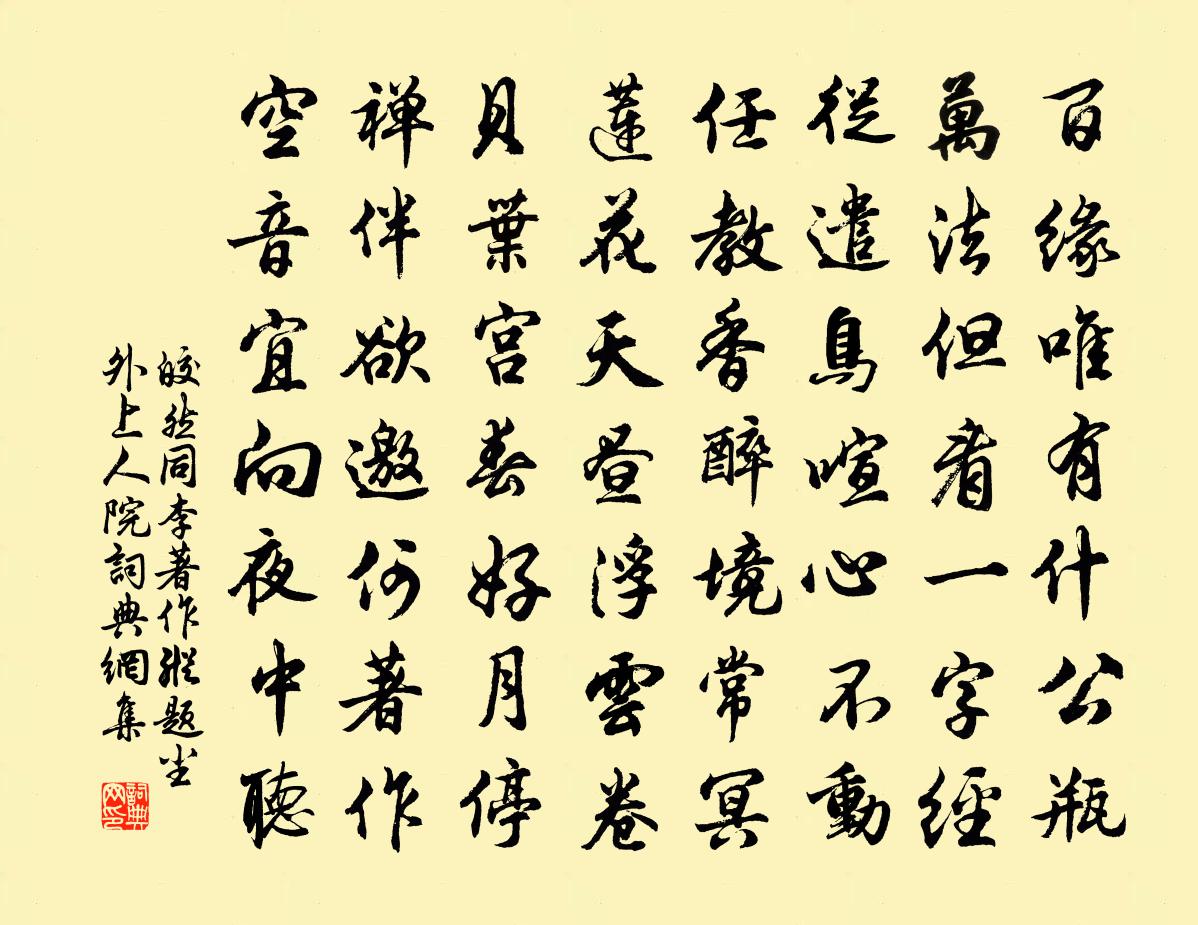 百緣唯有什公瓶
萬法但看一字經
從遣鳥喧心不動
任教香醉境常冥
蓮花天晝浮雲卷
貝葉宮春好月停
禅伴欲邀何著作
空音宜向夜中聽
皎然同李著作縱题尘
外上人院詞典網集
詞典网印